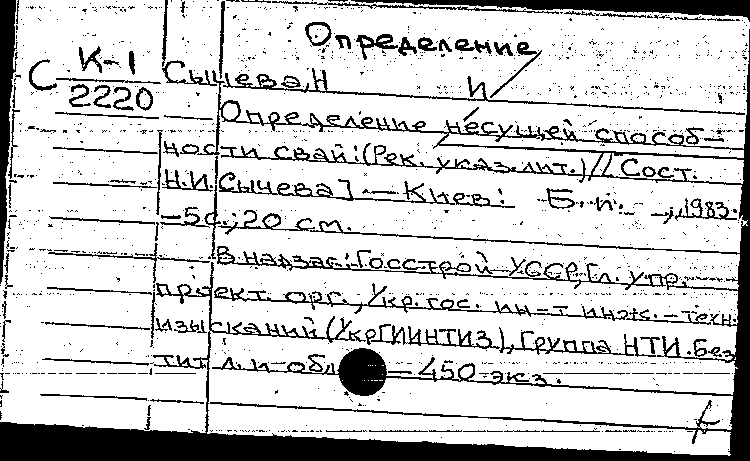 Определение
С К-1 Сычева, Н И
2220
Определение несущей способ-
ности свай: (Рек. указ. лит.) // [Сост.
Н.И. Сычева] — Киев: Б.и., 1983.
—5с.; 20 см.
В надзаг: Госстрой УССР, Гл. упр.
проект. орг., Укр. гос. ин-т инж.-техн.
изысканий (УкрГИИНТИЗ), Группа НТИ. Без
тит л. и обл — 450 экз.